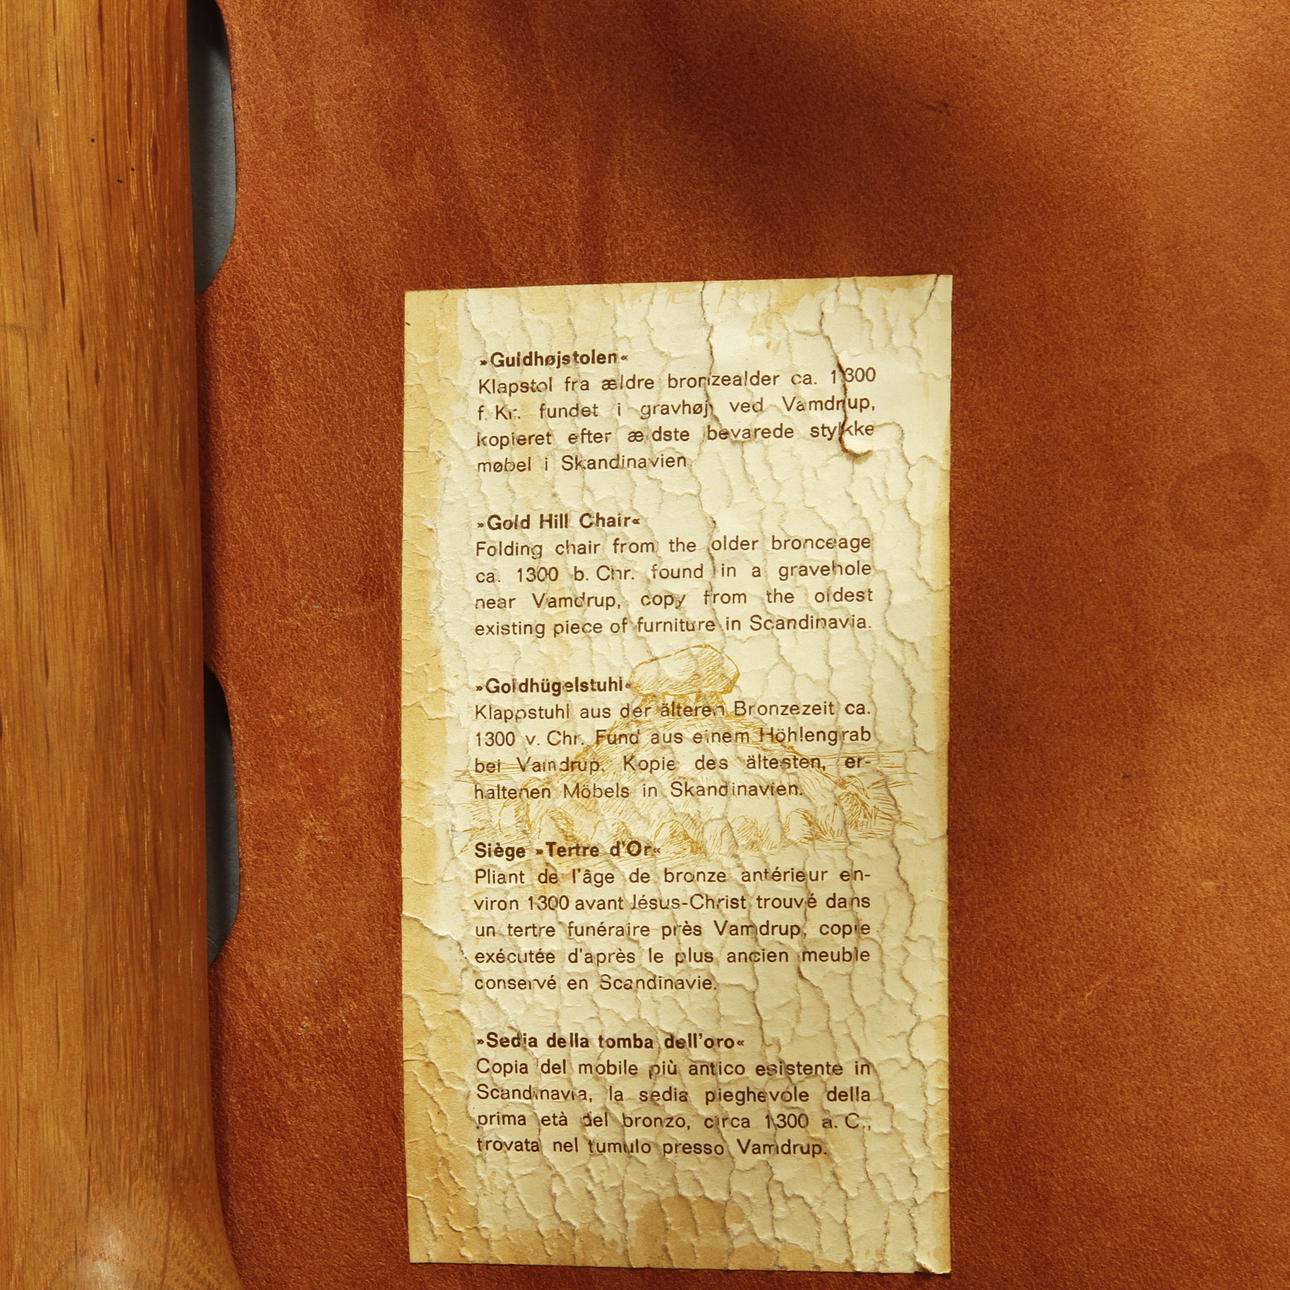 »Guldhøjstolen«
Klapstol fra ældre bronzealder ca. 1300
f. Kr. fundet i gravhøj ved Vamdrup,
kopieret efter ældste bevarede stykke
møbel i Skandinavien
»Gold Hill Chair«
Folding chair from the older bronceage
ca. 1300 b. Chr. found in a gravehole
near Vamdrup, copy from the oldest
existing piece of furniture in Scandinavia.
»Goldhügelstuhl«
Klappstuhl aus der älteren Bronzezeit ca.
1300 v. Chr. Fund aus einem Höhlengrab
bei Vamdrup. Kopie des ältesten, er-
haltenen Möbels in Skandinavien.
Siège »Tertre d'Or«
Pliant de l'âge de bronze antérieur en-
viron 1300 avant Jésus-Christ trouvé dans
un tertre funéraire près Vamdrup, copie
exécutée d'après le plus ancien meuble
conservé en Scandinavie.
»Sedia della tomba dell'oro«
Copia del mobile più antico esistente in
Scandinavia, la sedia pieghevole della
prima età del bronzo, circa 1300 a. C.,
trovata nel tumulo presso Vamdrup.